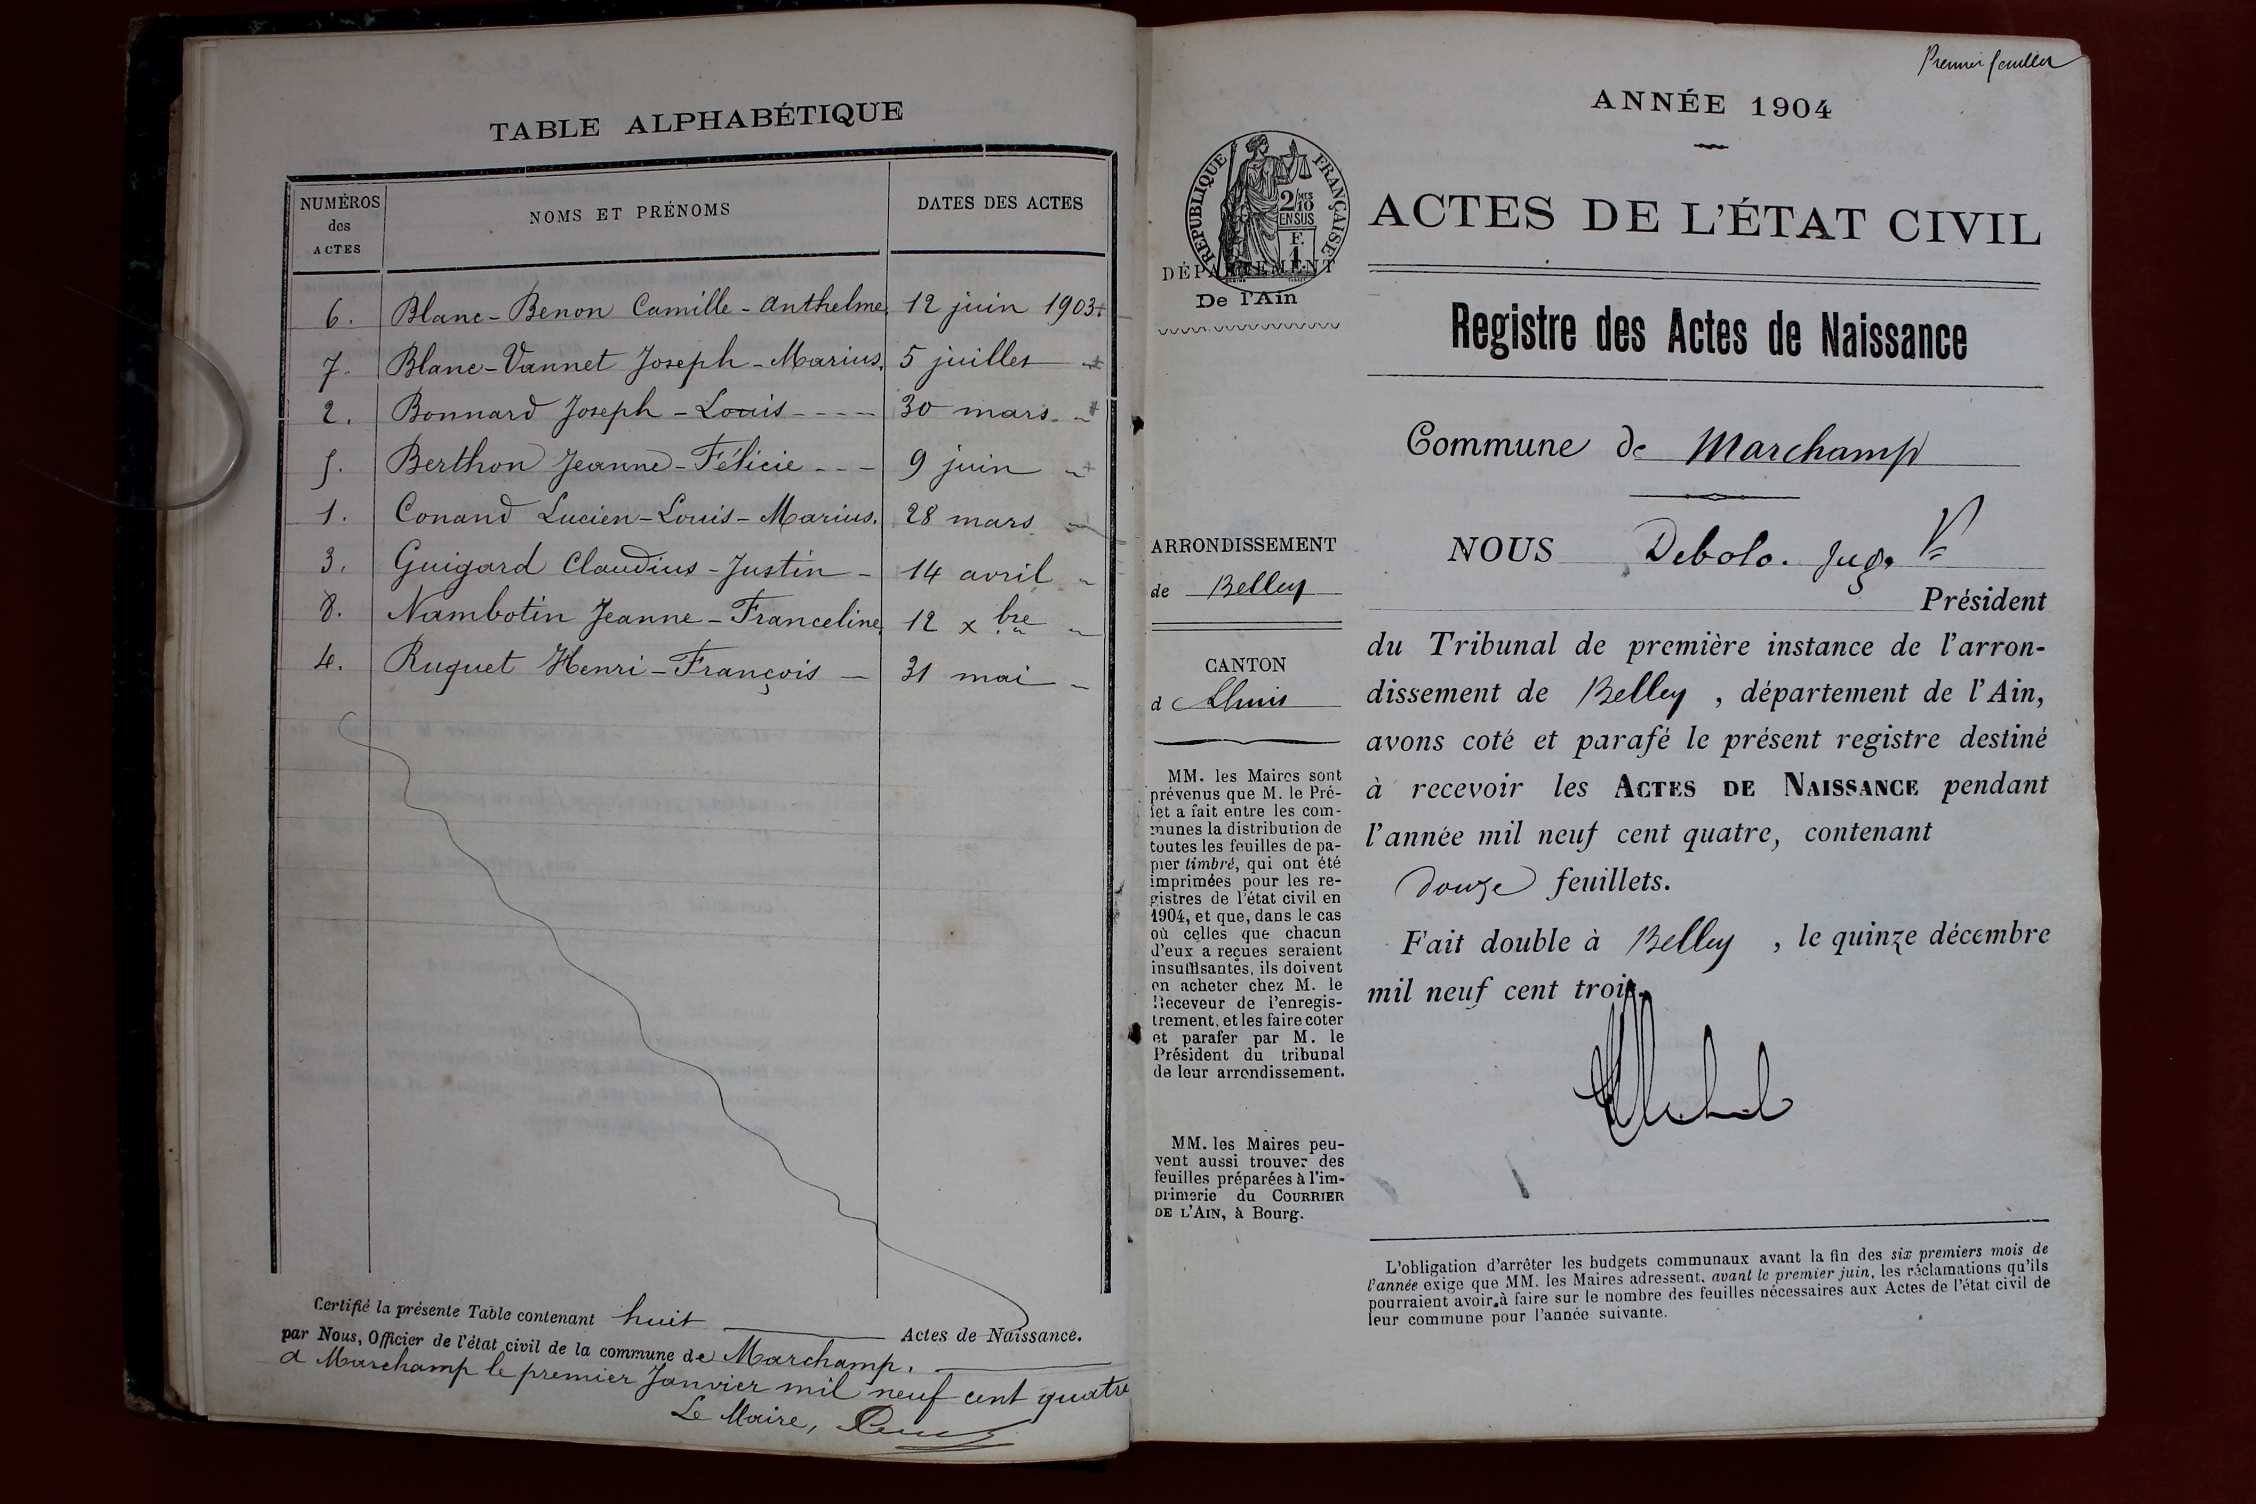 TABLE ALPHABÉTIQUE
NUMÉROS des ACTES | NOMS ET PRÉNOMS | DATES DES ACTES
6. Blanc-Benon Camille-Anthelme. 12 juin 1903
7. Blanc-Vannet Joseph-Marius. 5 juillet
2. Bonnard Joseph-Louis 30 mars
5. Berthon Jeanne-Félicie 9 juin
1. Conand Lucien-Louis-Marius. 28 mars
3. Guigard Claudius-Justin 14 avril
8. Nambotin Jeanne-Franceline 12 xbre
4. Ruguet Henri-François 31 mai
Certifié la présente Table contenant huit Actes de Naissance.
par Nous, Officier de l'état civil de la commune de Marchamp.
a Marchamp le premier Janvier mil neuf cent quatre
Le Maire,
Premier feuillet
ANNÉE 1904
RÉPUBLIQUE FRANÇAISE
2/10MES
EN SUS
F.
1
DÉPARTEMENT
De l'Ain
ACTES DE L'ÉTAT CIVIL
Registre des Actes de Naissance
Commune de Marchamp
ARRONDISSEMENT
de Belley
CANTON
d Lhuis
MM. les Maires sont
prévenus que M. le Pré-
fet a fait entre les com-
munes la distribution de
toutes les feuilles de pa-
pier timbré, qui ont été
imprimées pour les re-
gistres de l'état civil en
1904, et que, dans le cas
où celles que chacun
d'eux a reçues seraient
insuffisantes, ils doivent
en acheter chez M. le
Receveur de l'enregis-
trement, et les faire coter
et parafer par M. le
Président du tribunal
de leur arrondissement.
MM. les Maires peu-
vent aussi trouver des
feuilles préparées à l'im-
primerie du COURRIER
DE L'AIN, à Bourg.
NOUS Debolo. Jug.
Président
du Tribunal de première instance de l'arron-
dissement de Belley, département de l'Ain,
avons coté et parafé le présent registre destiné
à recevoir les ACTES DE NAISSANCE pendant
l'année mil neuf cent quatre, contenant
douze feuillets.
Fait double à Belley, le quinze décembre
mil neuf cent trois.
L'obligation d'arrêter les budgets communaux avant la fin des six premiers mois de
l'année exige que MM. les Maires adressent, avant le premier juin, les réclamations qu'ils
pourraient avoir à faire sur le nombre des feuilles nécessaires aux Actes de l'état civil de
leur commune pour l'année suivante.